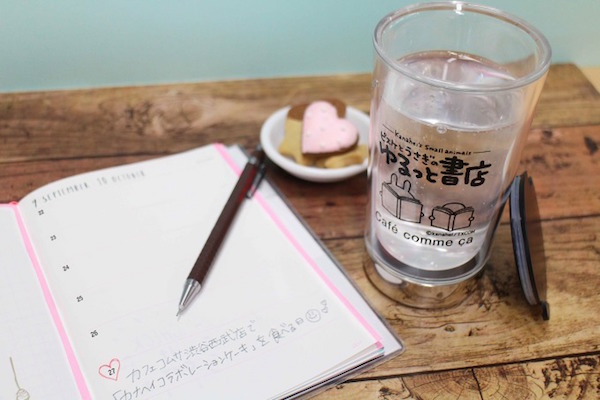 9 SEPTEMBER 10 OCTOBER
23
24
25
26
27
カフェコムサ渋谷西武店で
「カナヘイコラボレーションケーキ」を食べる日
Kanahei's Small animals
ピスケとうさぎの
ゆるっと書店
©kanahei / TXCOM
Café comme ça